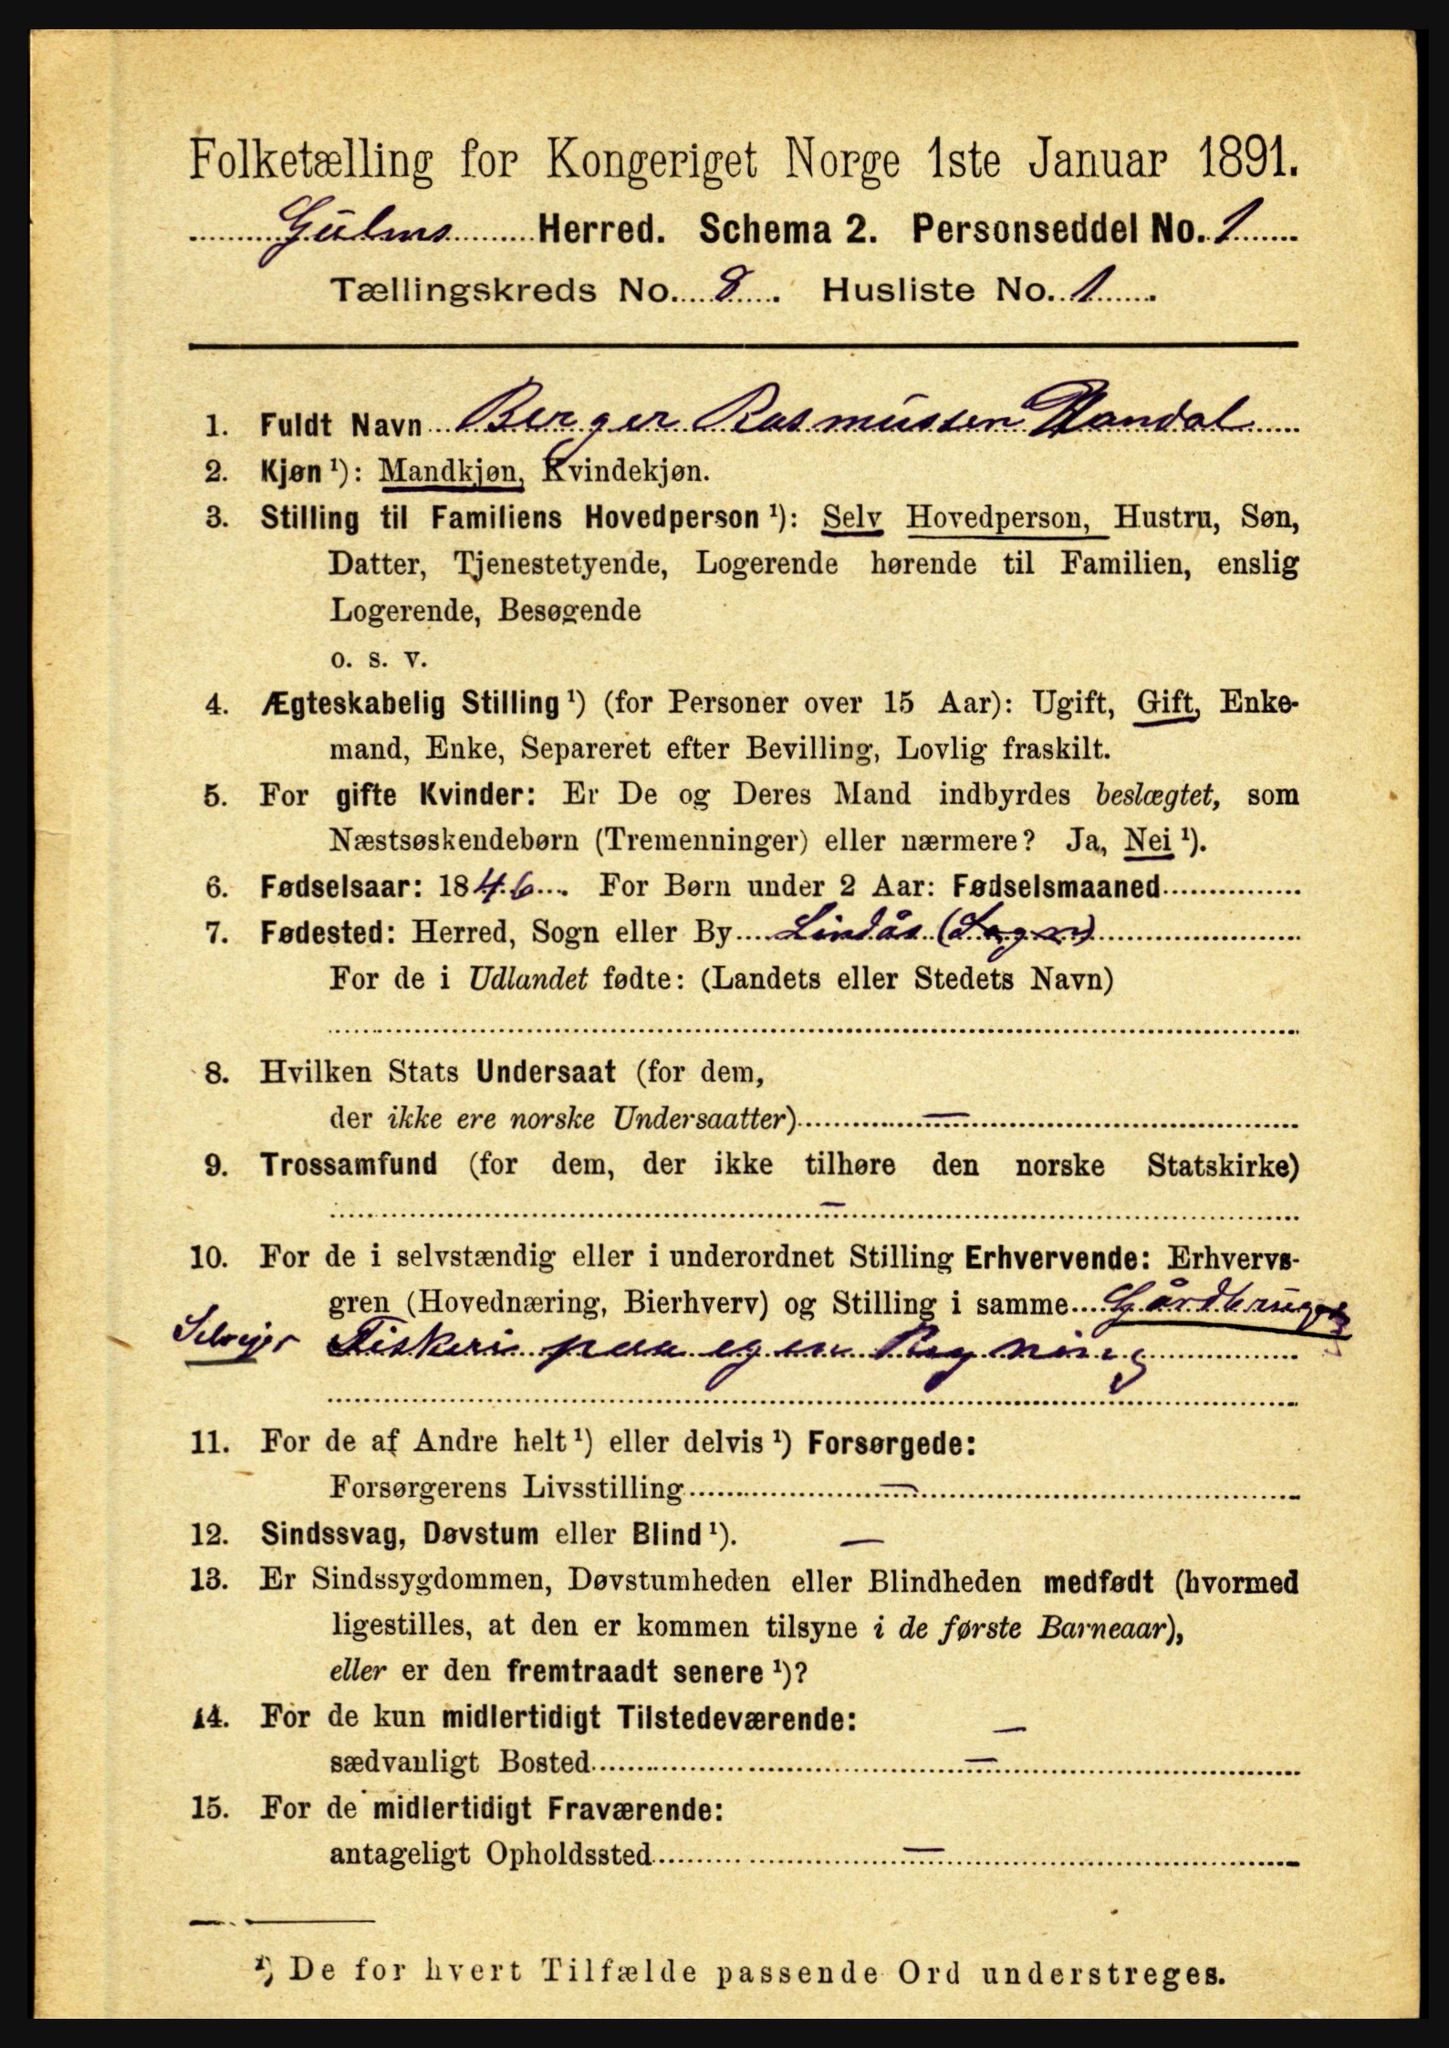 Folketælling for Kongeriget Norge 1ste Januar 1891.
Gulens Herred. Schema 2. Personseddel No. 1
Tællingskreds No. 8. Husliste No. 1.
1. Fuldt Navn Berger Rasmussen Randal
2. Kjøn ¹): Mandkjøn, Kvindekjøn.
3. Stilling til Familiens Hovedperson ¹): Selv Hovedperson, Hustru, Søn,
Datter, Tjenestetyende, Logerende hørende til Familien, enslig
Logerende, Besøgende
o. s. v.
4. Ægteskabelig Stilling ¹) (for Personer over 15 Aar): Ugift, Gift, Enke-
mand, Enke, Separeret efter Bevilling, Lovlig fraskilt.
5. For gifte Kvinder: Er De og Deres Mand indbyrdes beslægtet, som
Næstsøskendebørn (Tremenninger) eller nærmere? Ja, Nei ¹).
6. Fødselsaar: 1846. For Børn under 2 Aar: Fødselsmaaned
7. Fødested: Herred, Sogn eller By Lindås (Sogn)
For de i Udlandet fødte: (Landets eller Stedets Navn)
8. Hvilken Stats Undersaat (for dem,
der ikke ere norske Undersaatter) —
9. Trossamfund (for dem, der ikke tilhøre den norske Statskirke)
—
10. For de i selvstændig eller i underordnet Stilling Erhvervende: Erhvervs-
gren (Hovednæring, Bierhverv) og Stilling i samme Gårdbruger
Selvejer Fiskeri paa egen Regning
11. For de af Andre helt ¹) eller delvis ¹) Forsørgede:
Forsørgerens Livsstilling —
12. Sindssvag, Døvstum eller Blind ¹). —
13. Er Sindssygdommen, Døvstumheden eller Blindheden medfødt (hvormed
ligestilles, at den er kommen tilsyne i de første Barneaar),
eller er den fremtraadt senere ¹)?
14. For de kun midlertidigt Tilstedeværende: —
sædvanligt Bosted —
15. For de midlertidigt Fraværende:
antageligt Opholdssted —
¹) De for hvert Tilfælde passende Ord understreges.